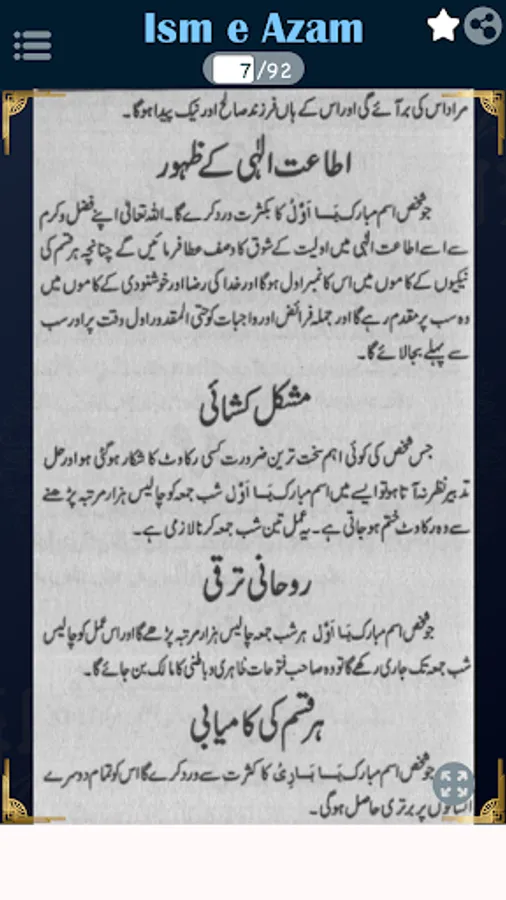 Ism e Azam
7/92
مراد اس کی بر آئے گی اور اس کے ہاں فرزند صالح اور نیک پیدا ہوگا۔
اطاعت الٰہی کے ظہور
جو شخص اسم مبارک یَا اَوَّلُ کا بکثرت ورد کرے گا۔ اللہ تعالیٰ اپنے فضل و کرم
سے اسے اطاعت الٰہی میں اولیت کے شوق کا وصف عطا فرمائیں گے چنانچہ ہر قسم کی
نیکیوں کے کاموں میں اس کا نمبر اول ہوگا اور خدا کی رضا اور خوشنودی کے کاموں میں
وہ سب پر مقدم رہے گا اور جملہ فرائض اور واجبات کو حتی المقدور اول وقت پر اور سب
سے پہلے بجا لائے گا۔
مشکل کشائی
جس شخص کی کوئی اہم سخت ترین ضرورت کسی رکاوٹ کا شکار ہو گئی ہو اور حل
تدبیر نظر نہ آتا ہو تو ایسے میں اسم مبارک یَا اَوَّلُ شب جمعہ کو چالیس ہزار مرتبہ پڑھنے
سے وہ رکاوٹ ختم ہو جاتی ہے۔ یہ عمل تین شب جمعہ کرنا لازمی ہے۔
روحانی ترقی
جو شخص اسم مبارک یَا اَوَّلُ ہر شب جمعہ چالیس ہزار مرتبہ پڑھے گا اور اس عمل کو چالیس
شب جمعہ تک جاری رکھے گا تو وہ صاحب فتوحات ظاہری و باطنی کا مالک بن جائے گا۔
ہر قسم کی کامیابی
جو شخص اسم مبارک یَا بَارِیُ کا کثرت سے ورد کرے گا اس کو تمام دوسرے
انسانوں پر برتری حاصل ہوگی۔